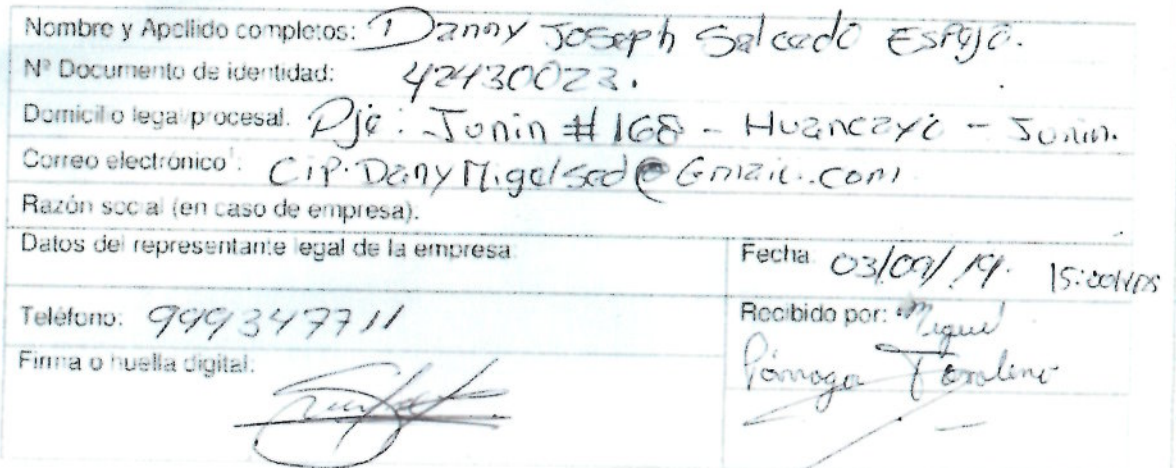 Nombre y Apellido completos: Danny Joseph Salcedo Espejo.
Nº Documento de identidad: 42430023.
Domicilio legal/procesal. Pje: Junin # 168 - Huancayo - Junin.
Correo electrónico¹: Cip.DanyMigalsed@Gmail.com
Razón social (en caso de empresa):
Datos del representante legal de la empresa:
Fecha 03/09/19. 15:00hrs
Teléfono: 999347711
Recibido por: Miguel
Párraga
Firma o huella digital: